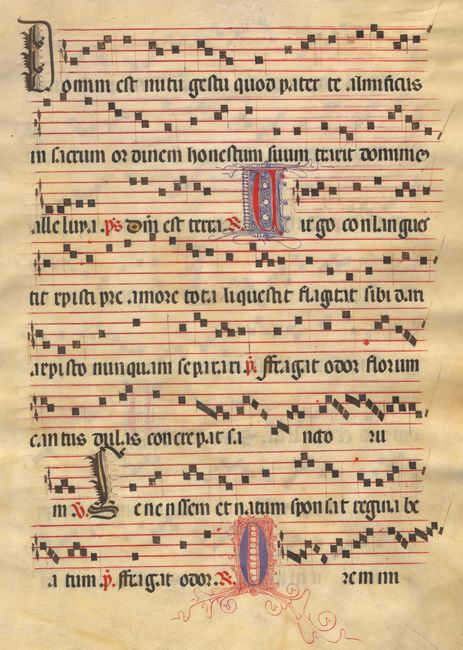 Domini est nutu gestu quod pater te almificus
in sacrum ordinem honestum suum trarit domine
alleluya .ps dm est terra R. Virgo conlangues
tit xpisti pre amore tota liquescit flagitat sibi dari
.a xpisto nunquam separari p. ffragat odor florum
cantus dulcis concrepat sa ncto ru
m v. Ie nenssem et natum sponsat regina be
.a tum p. ffragat odor. R. O re mi mi